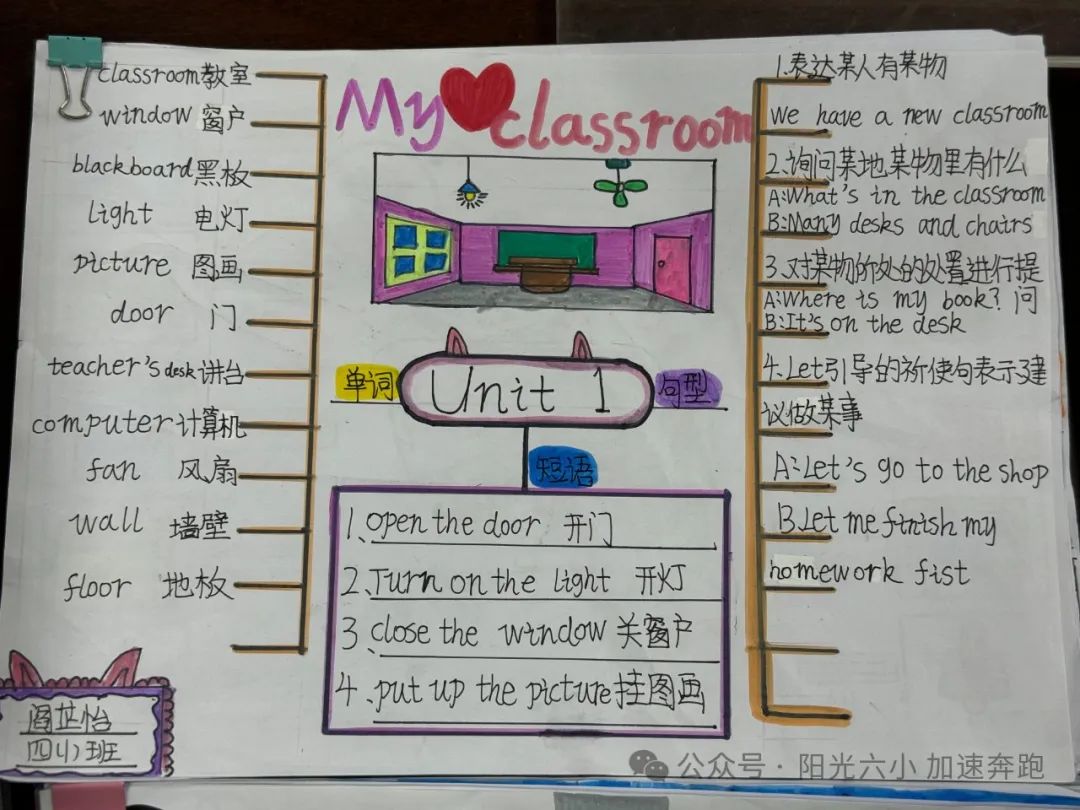 classroom教室
window 窗户
blackboard黑板
light 电灯
picture 图画
door 门
teacher's desk 讲台
computer 计算机
fan 风扇
wall 墙壁
floor 地板
My classroom
单词
Unit 1
句型
短语
1、open the door 开门
2、Turn on the light 开灯
3、close the window 关窗户
4、put up the picture挂图画
1.表达某人有某物
we have a new classroom
2.询问某地某物里有什么
A:What's in the classroom
B:Many desks and chairs
3.对某物所处的位置进行提
A:Where is my book? 问
B:It's on the desk
4.Let引导的祈使句表示建
议做某事
A:Let's go to the shop
B.Let me finish my
homework fist
阎芷怡
四(1)班
公众号·阳光六小 加速奔跑